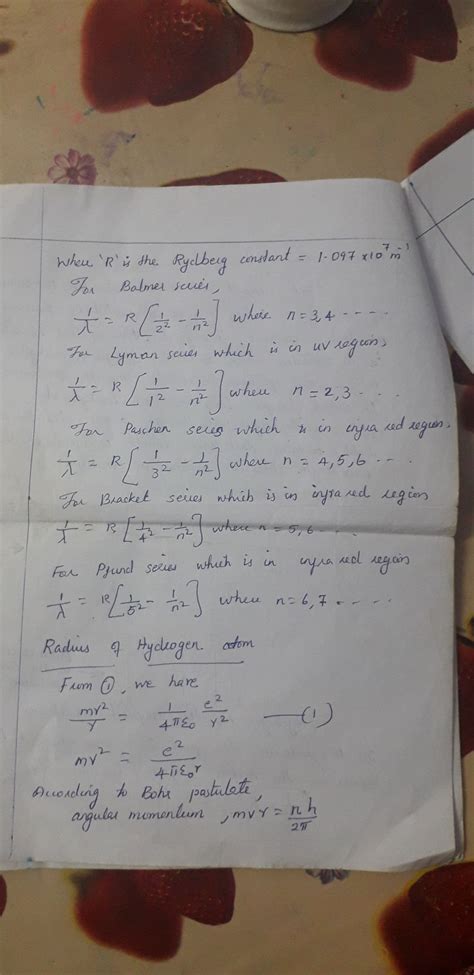 Where 'R' is the Rydberg constant = 1.097 x10⁷ m⁻¹
For Balmer series,
1/λ = R [1/2² - 1/n²] where n=3,4 - - - -
For Lyman series which is in uv region,
1/λ = R [1/1² - 1/n²] where n=2,3 - - -
For Paschen series which is in infra red region.
1/λ = R [1/3² - 1/n²] where n=4,5,6 - - -
For Bracket series which is in infra red region
1/λ = R [1/4² - 1/n²] where n=5,6 - - -
For Pfund series which is in infra red region
1/λ = R [1/5² - 1/n²] where n=6,7 - - - -
Radius of Hydrogen atom
From ①, we have
mv²/r = 1/4πε₀ e²/r² —(1)
mv² = e²/4πε₀r
According to Bohr postulate,
angular momentum, mvr = nh/2π